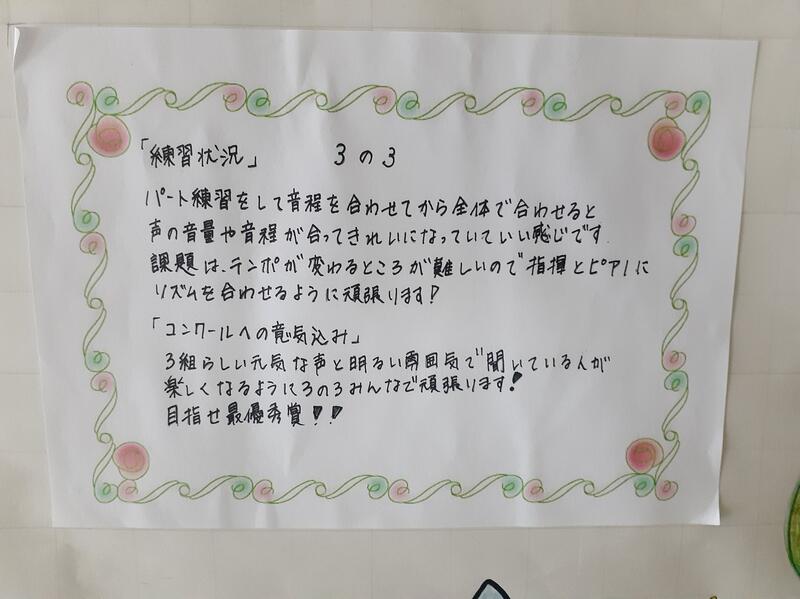 「練習状況」 3の3
パート練習をして音程を合わせてから全体で合わせると
声の音量や音程が合ってきれいになっていていい感じです.
課題は、テンポが変わるところが難しいので指揮とピアノに
リズムを合わせるように頑張ります!
「コンクールへの意気込み」
3組らしい元気な声と明るい雰囲気で聞いている人が
楽しくなるように3の3みんなで頑張ります!
目指せ最優秀賞!!